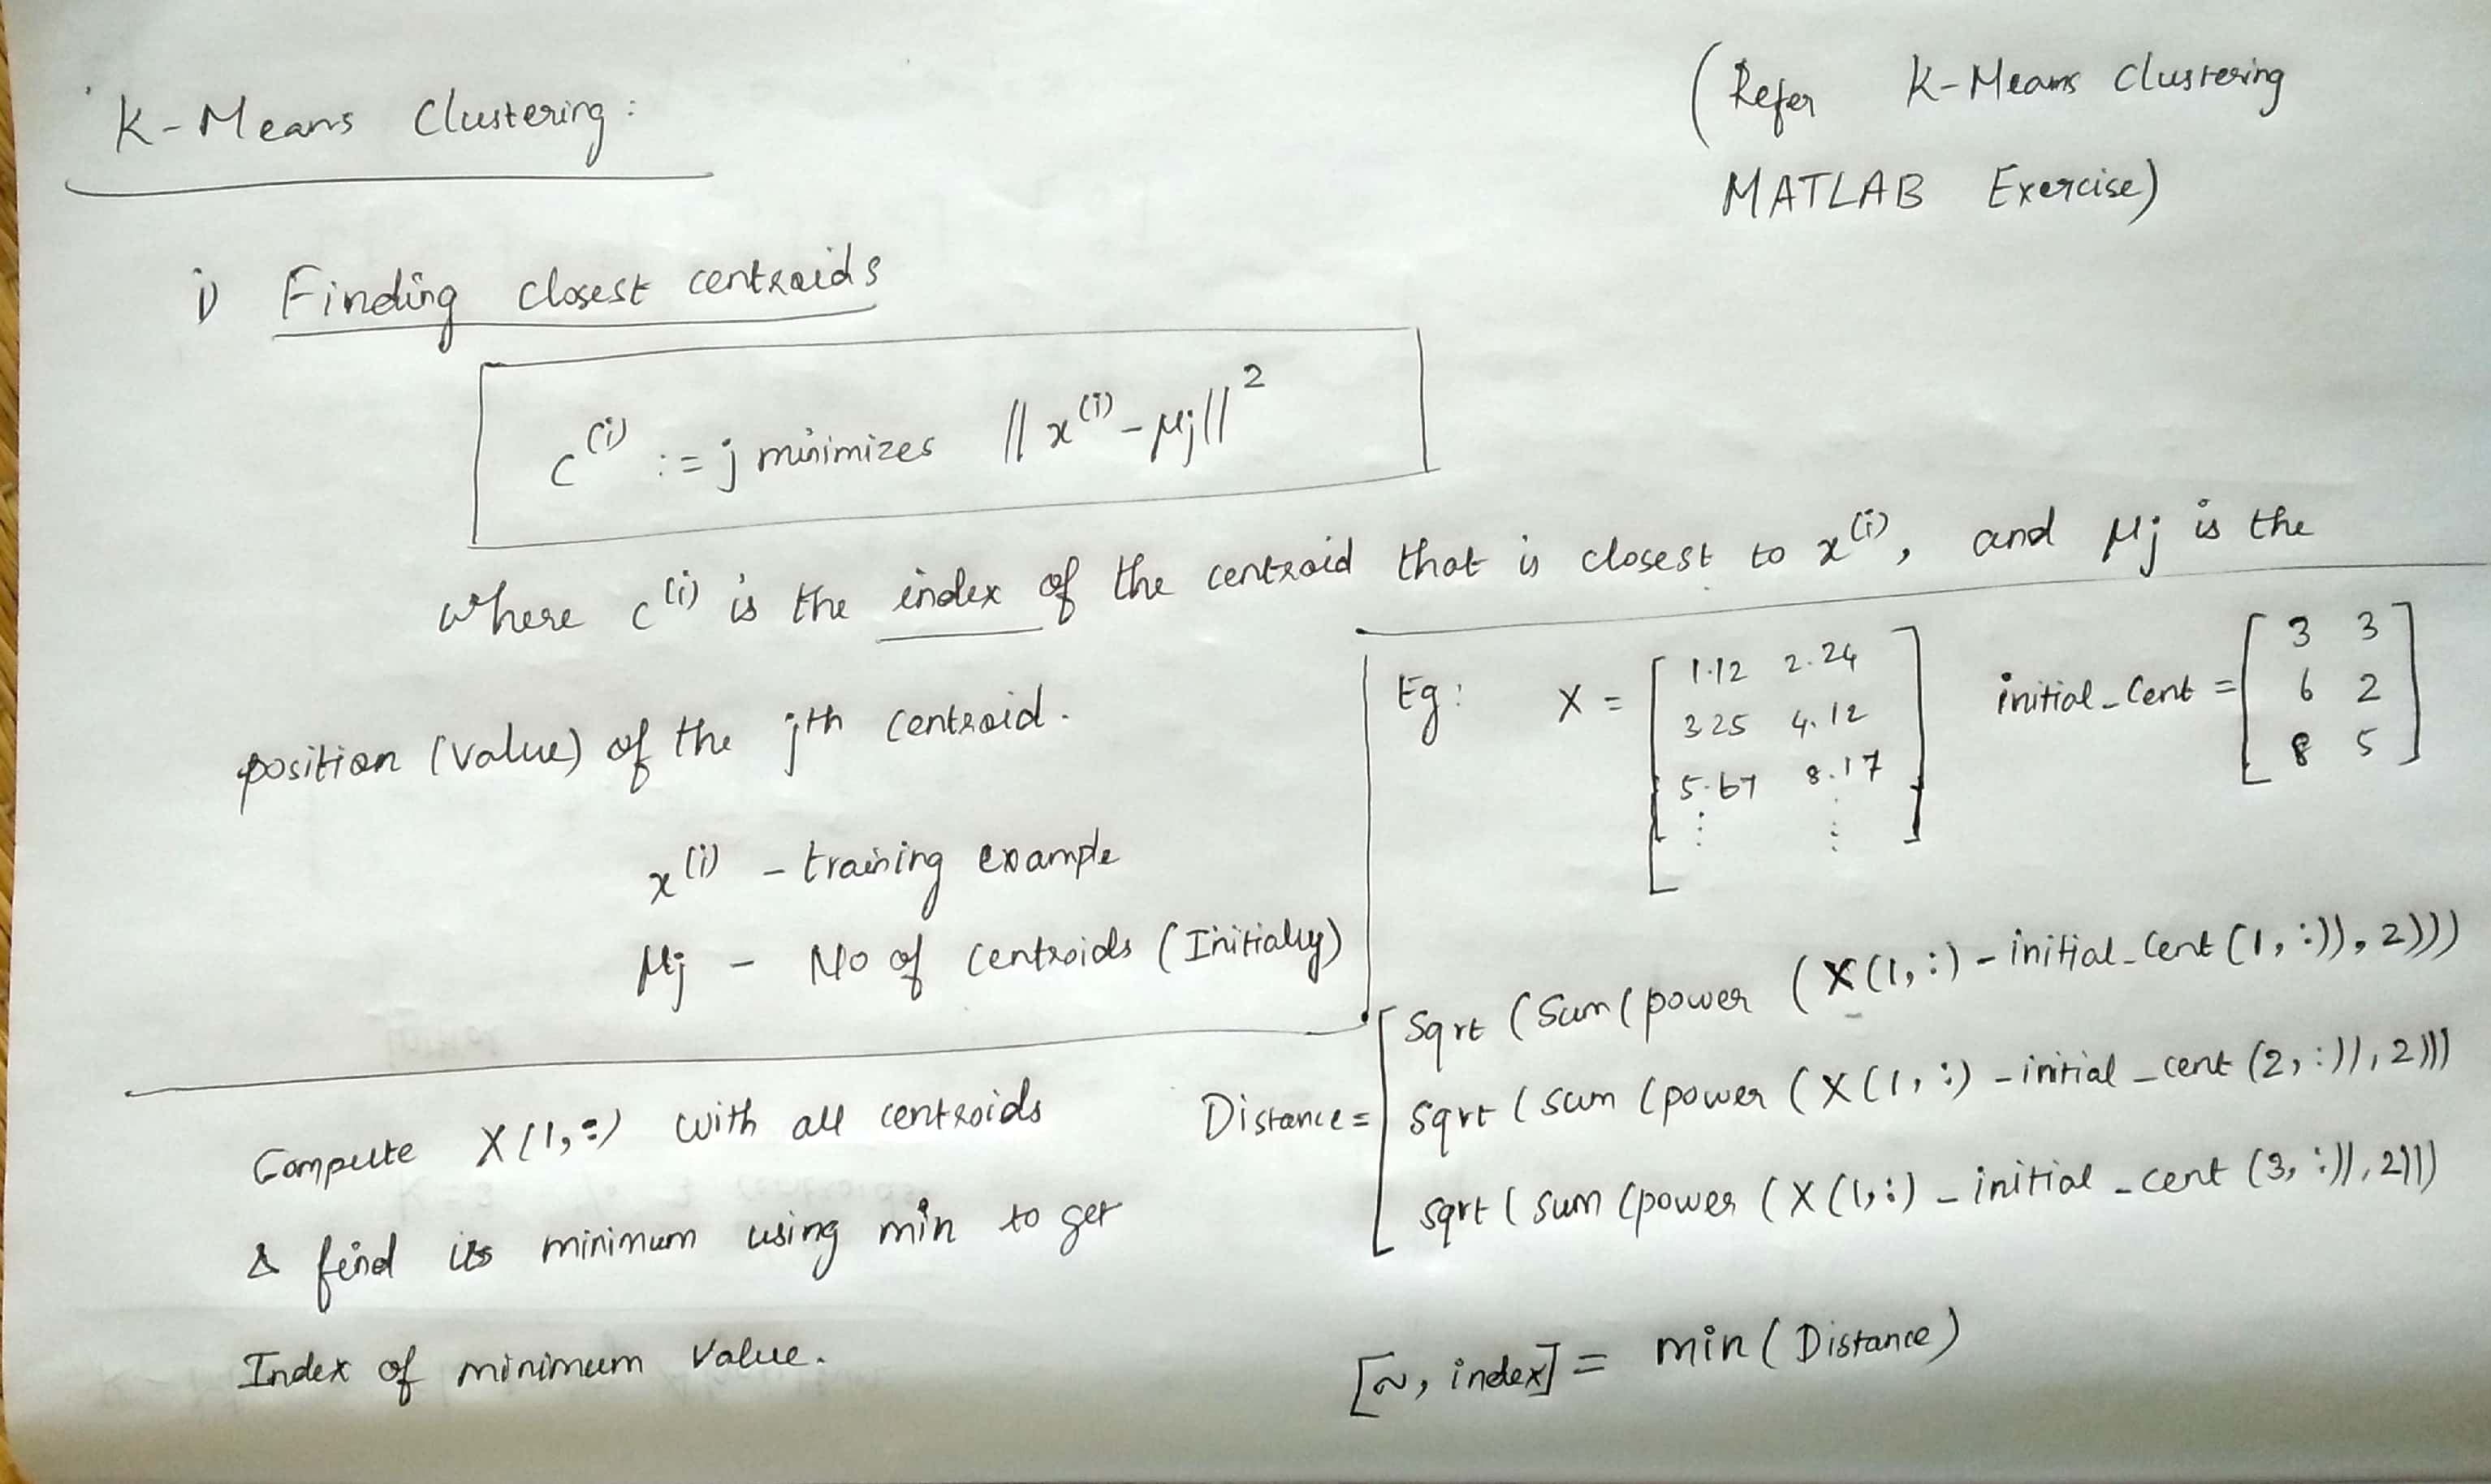 K-Means Clustering:
(Refer K-Means Clustering
MATLAB Exercise)
i) Finding closest centroids
c^(i) := j minimizes ||x^(i) - μj||^2
where c^(i) is the index of the centroid that is closest to x^(i), and μj is the
position (value) of the jth centroid.
x^(i) - training example
μj - No of centroids (Initially)
Eg: X = [ 1.12 2.24
3.25 4.12
5.67 8.17
⋮ ⋮ ]
initial_cent = [ 3 3
6 2
8 5 ]
Compute X(1,:) with all centroids
& find its minimum using min to get
Index of minimum value.
Distance = [ Sqrt (Sum (power (X(1,:) - initial_cent (1,:)), 2)))
sqrt (sum (power (X(1,:) - initial_cent (2,:)), 2)))
sqrt (sum (power (X(1,:) - initial_cent (3,:)), 2)))
[~, index] = min (Distance)